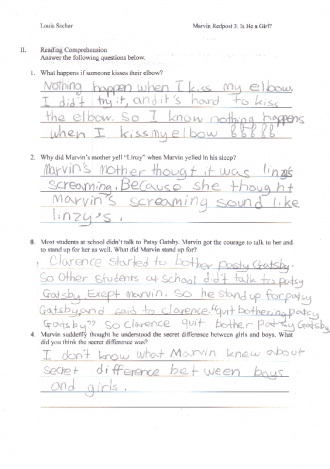 Louis Sachar Marvin Redpost 3: Is He a Girl?
II. Reading Comprehension
Answer the following questions below.
1. What happens if someone kisses their elbow?
Nothing happen when I kiss my elbow.
I didn't try it, and it's hard to kiss
the elbow. So I know nothing happens
when I kiss my elbow
2. Why did Marvin's mother yell "Linzy" when Marvin yelled in his sleep?
Marvin's mother thought it was linzy's
screaming. Because she thought
Marvin's screaming sound like
linzy's.
3. Most students at school didn't talk to Patsy Gatsby. Marvin got the courage to talk to her and
to stand up for her as well. What did Marvin stand up for?
Clarence started to bother pasty Gatsby.
So Other Students at school didn't talk to patsy
Gatsby. Exept Marvin. So he stand up for patsy
Gatsby, and said to clarence "quit bothering patsy
Gatsby" So Clarence quit bother Patsy Gatsby
4. Marvin suddenly thought he understood the secret difference between girls and boys. What
did you think the secret difference was?
I don't know what Marvin knew about
secret difference between boys
and girls.